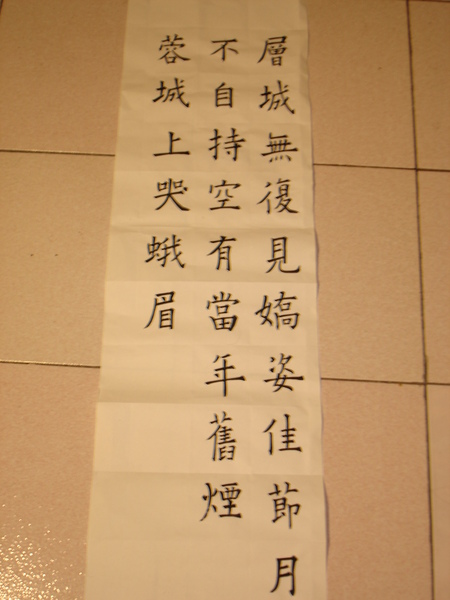 層城無復見嬌姿佳節月
不自持空有當年舊煙
蓉城上哭蛾眉